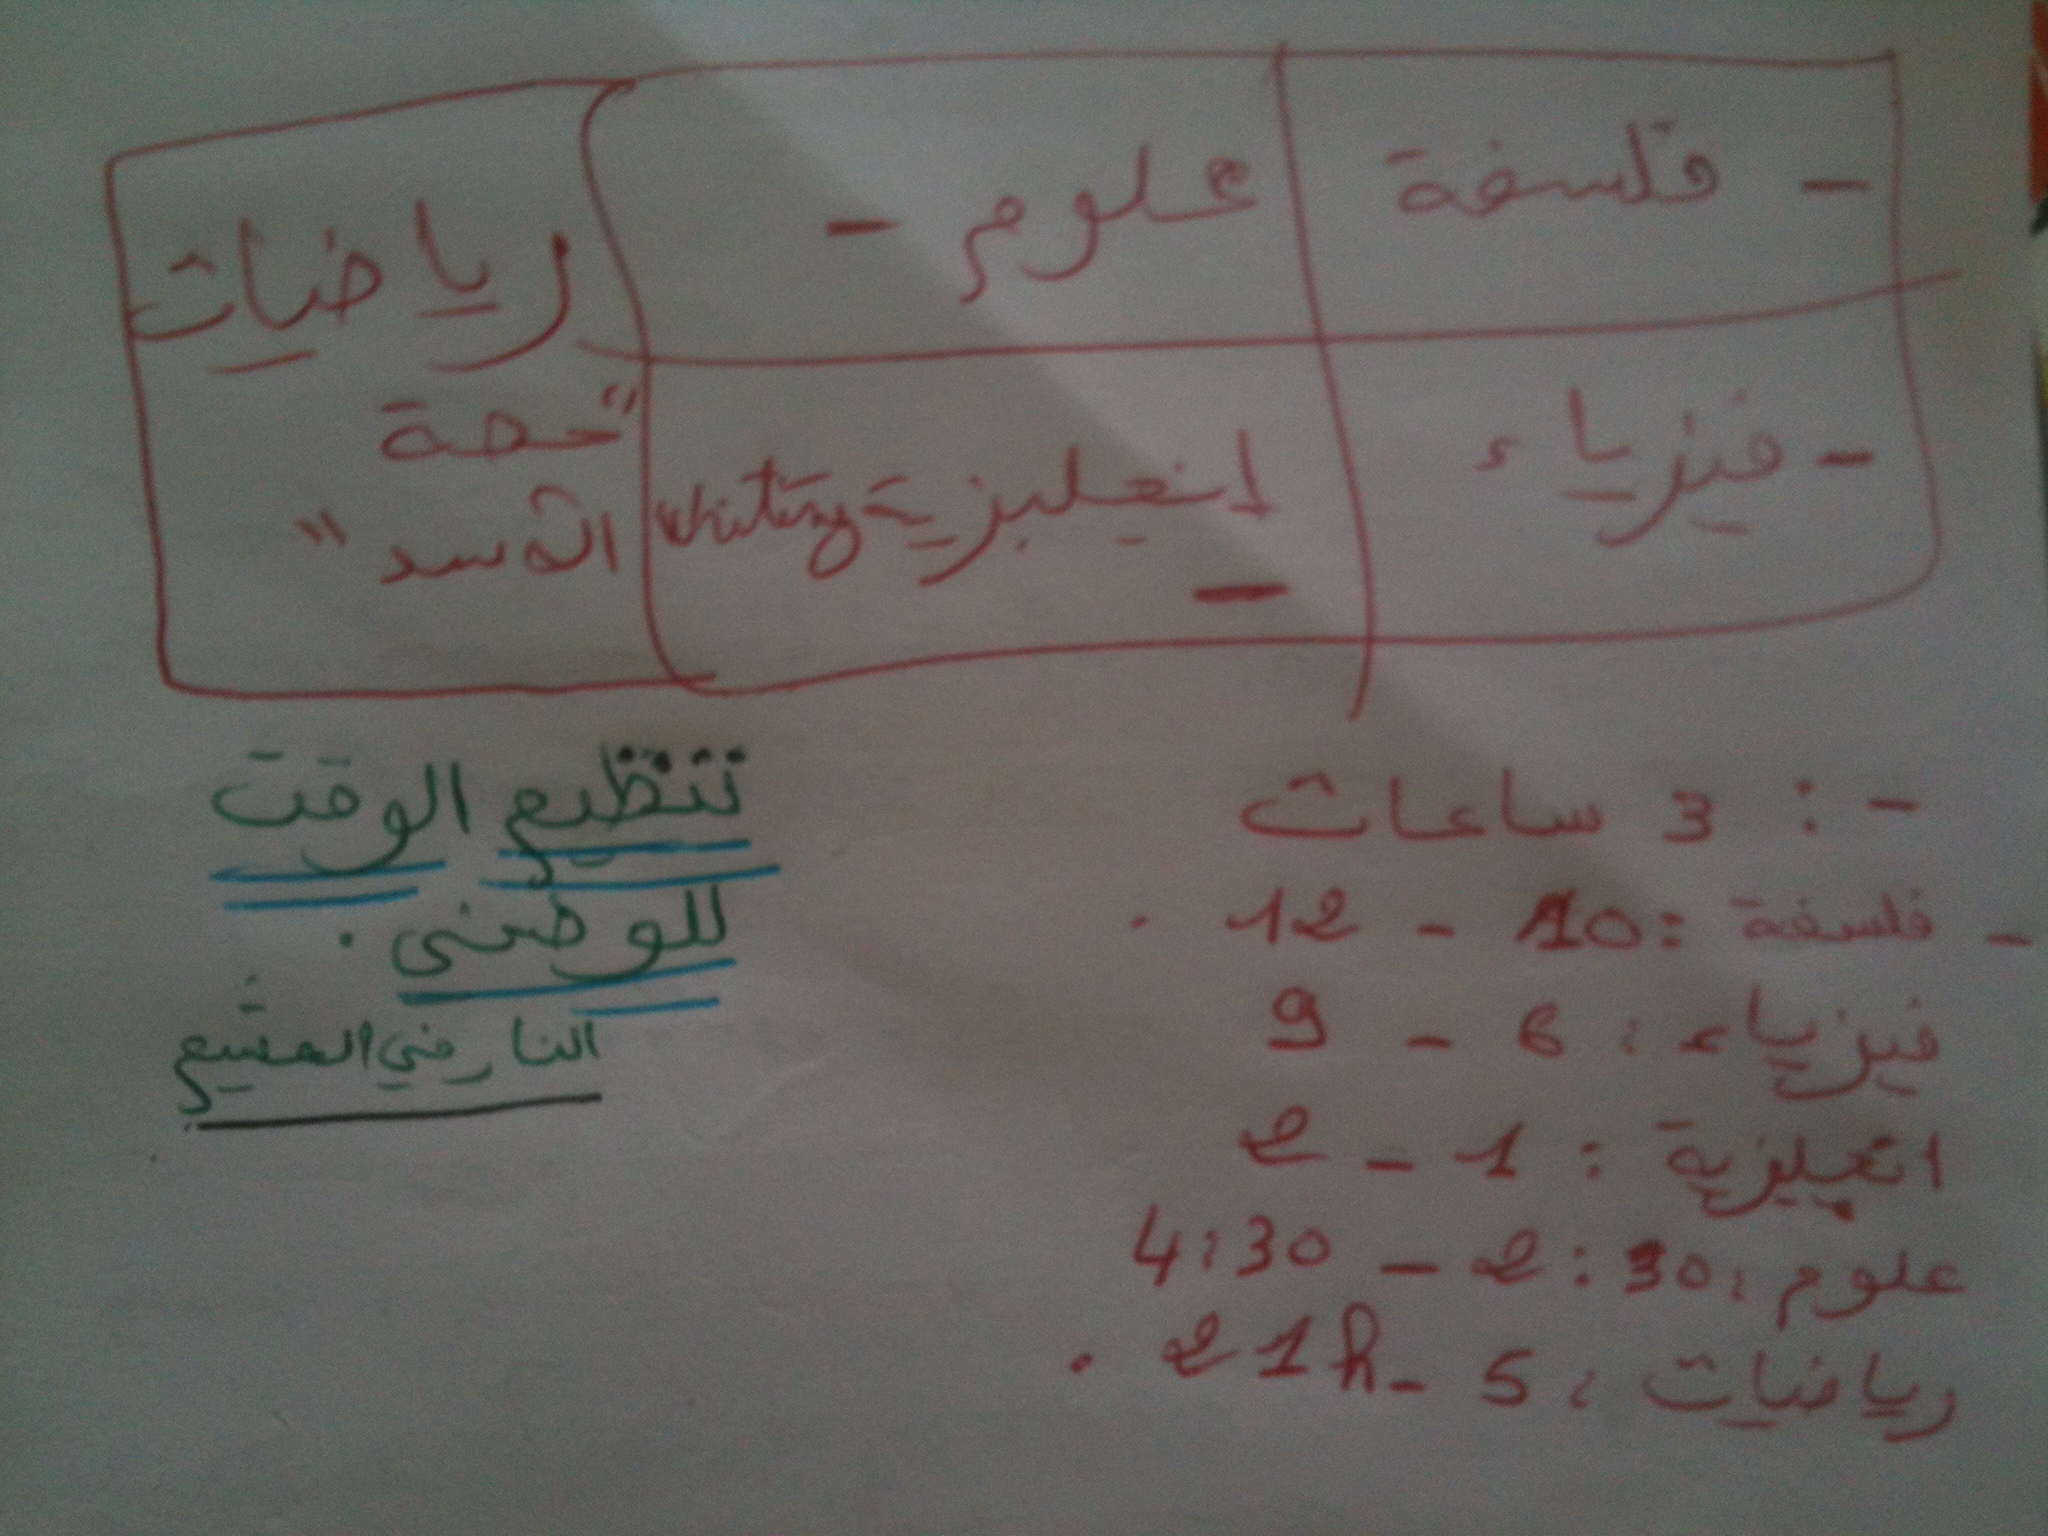 - فلسفة
علوم -
رياضيات
- فيزياء
انجليزية writing
-
"حصة
الأسد"
- : 3 ساعات
- فلسفة : 10 - 12 .
فيزياء : 6 - 9
انجليزية : 1 - 2
علوم : 2:30 - 4:30
رياضيات : 5 - 21h .
تنظيم الوقت
للوطني .
النار في المشيع